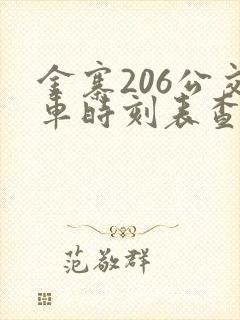 金寨206公交
车时刻表查
范敬群